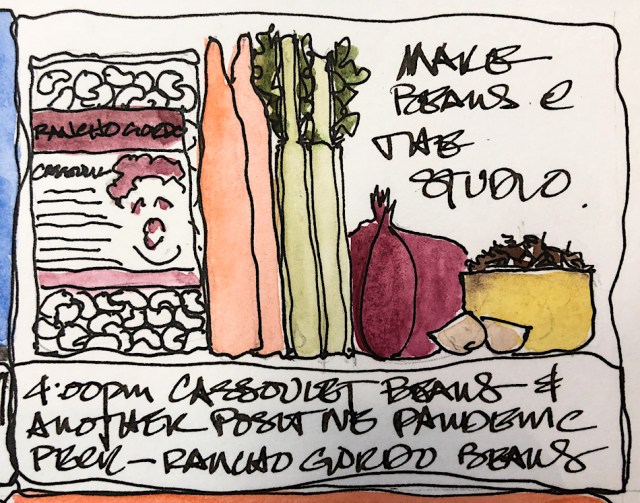 RANCHO GORDO
CASSOULET
MAKE
BEANS @
THE
STUDIO.
4:00PM CASSOULET BEANS &
ANOTHER POSITIVE PANDEMIC
PERK - RANCHO GORDO BEANS